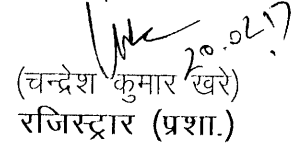 20.02.17
(चन्द्रेश कुमार खरे)
रजिस्ट्रार (प्रशा.)